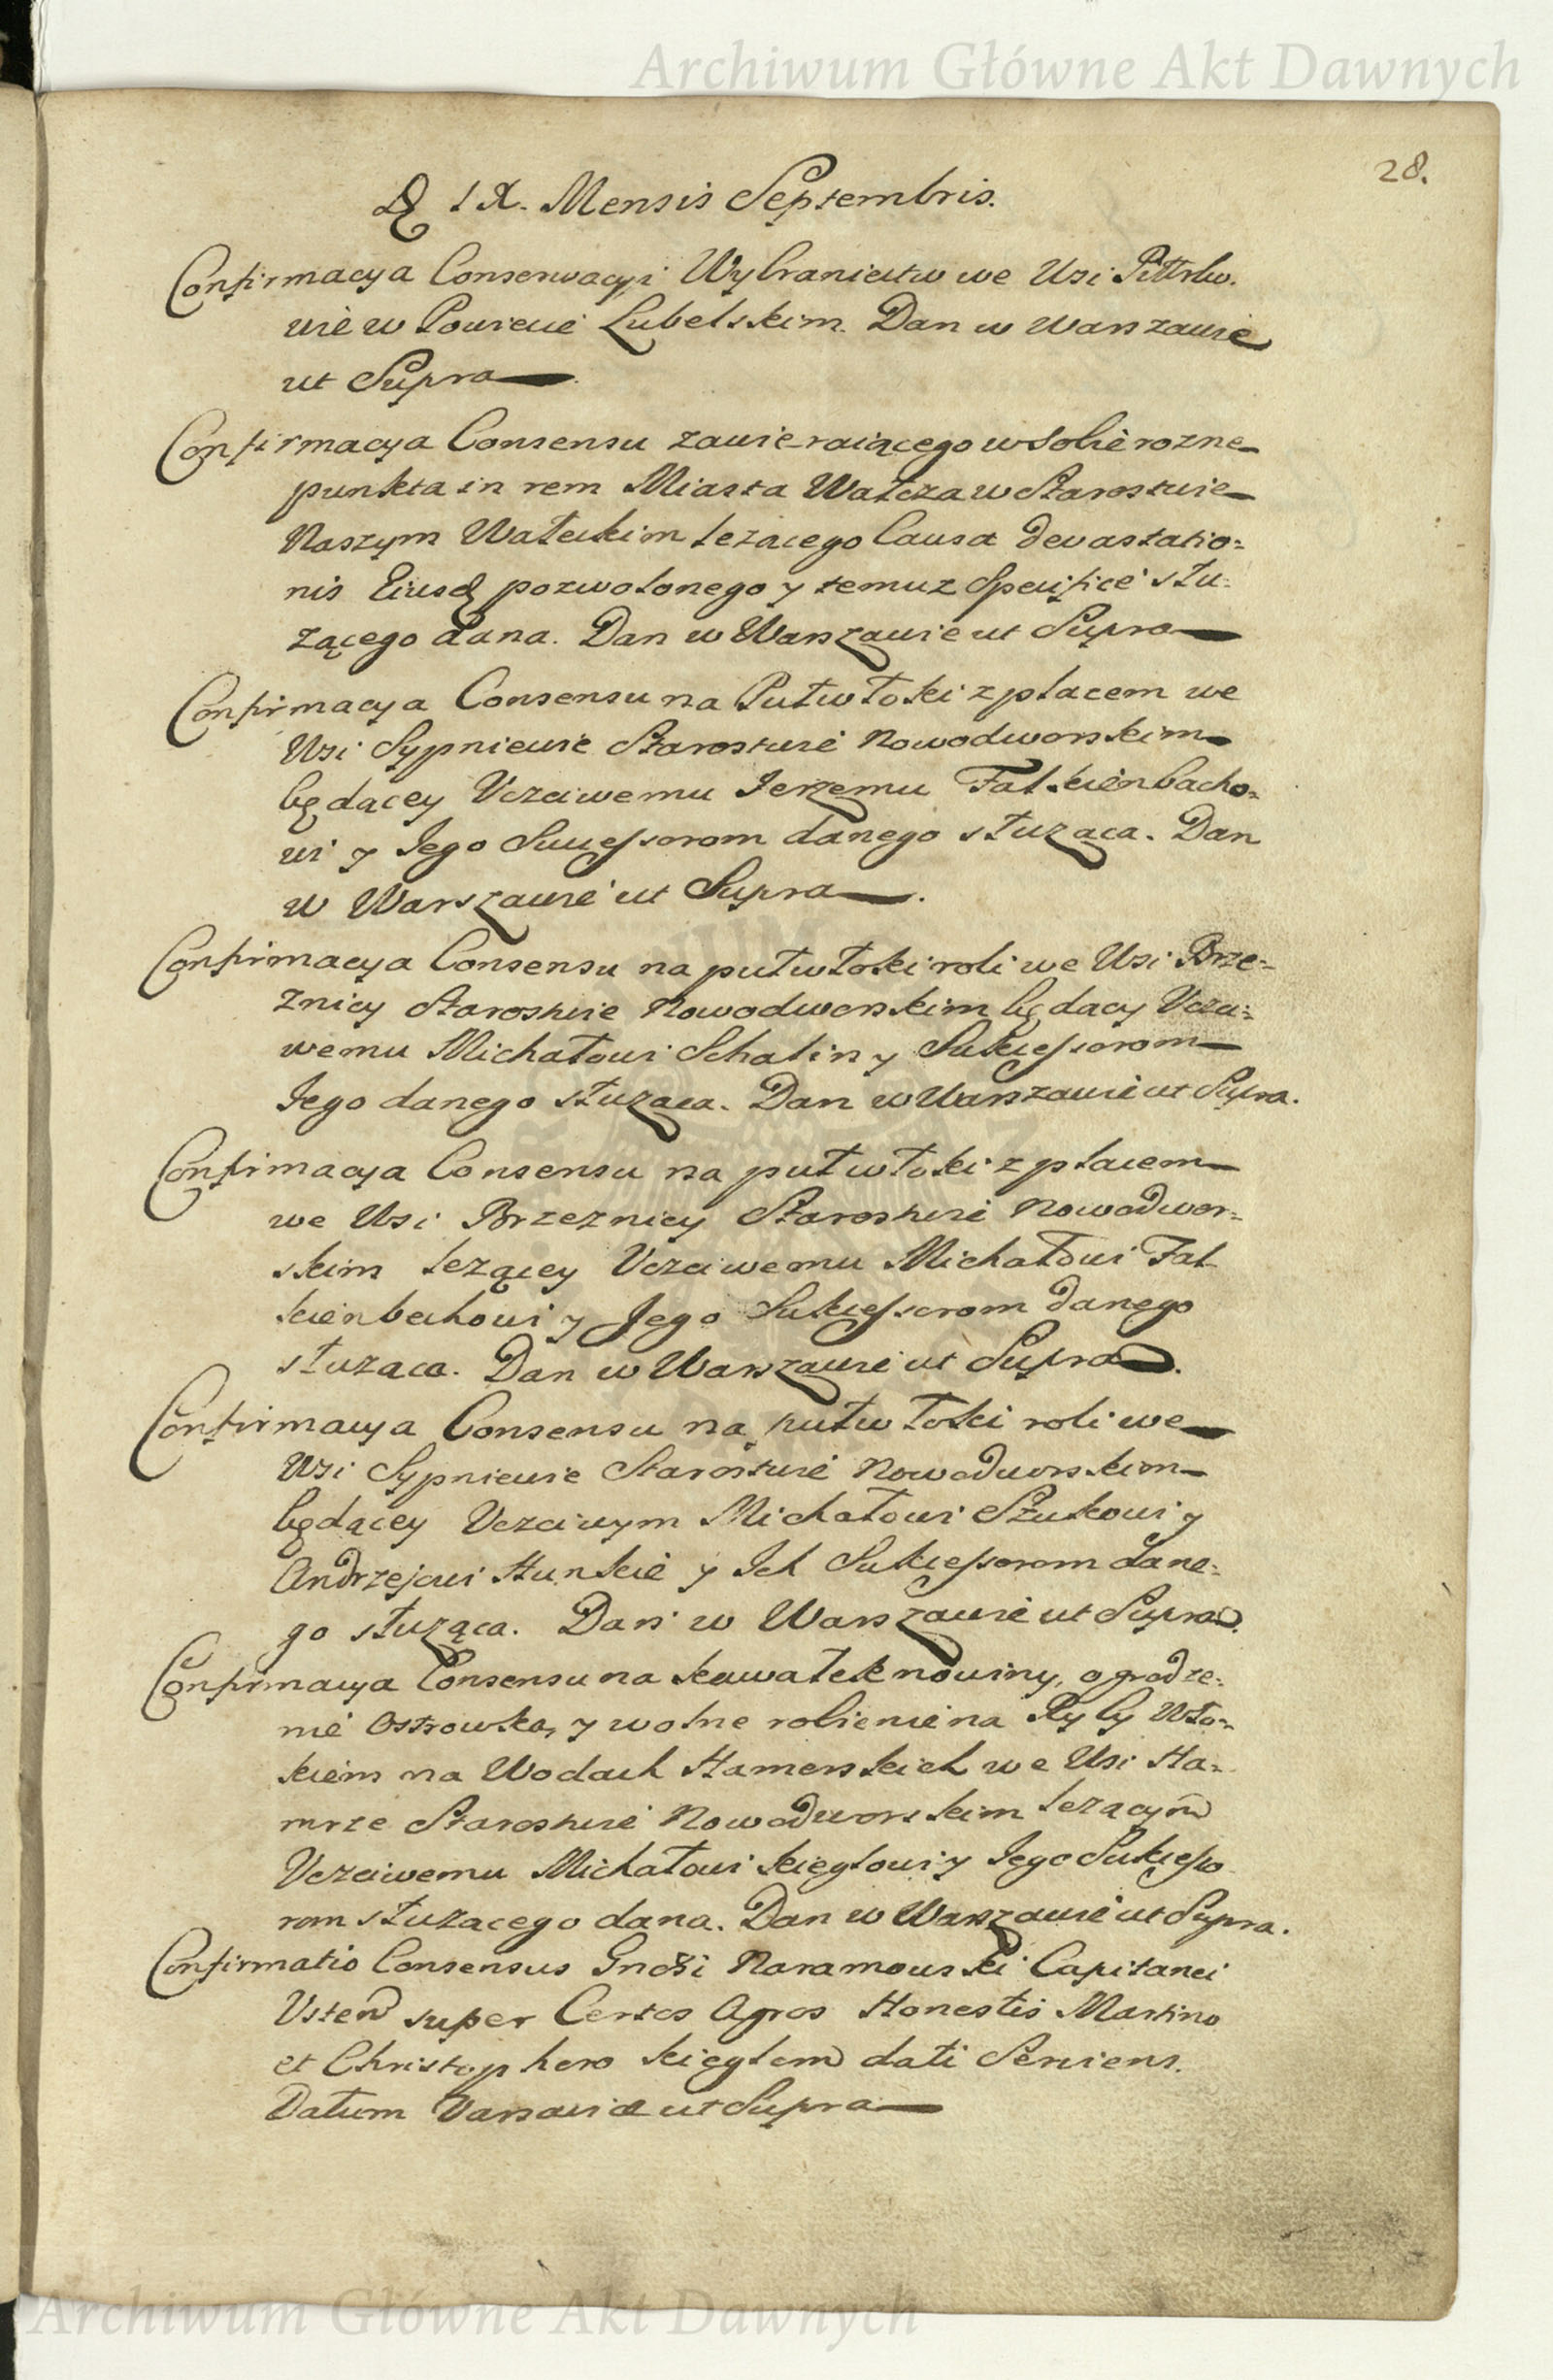 Archiwum Główne Akt Dawnych
28.
D. IX. Mensis Septembris.
Confirmacya Conserwacyi Wybraniectw we Wsi
wie w Powiecie Lubelskim. Dan w Warszawie
ut Supra
Confirmacya Consensu zawieraiącego w sobie rozne
punkta in rem Miasta Wałcza w Starostwie
Naszym Wałeckim lezącego Causa devastatio=
nis Eiusd pozwolonego y temuz Specifice słu=
zącego dana. Dan w Warszawie ut Supra
Confirmacya Consensu na Puł włoki z placem we
Wsi Sypniewie Starostwie Nowodworskim
będącey Uczciwemu Jerzemu Falkienbacho=
wi y Jego Successorom danego słuząca. Dan
w Warszawie ut Supra.
Confirmacya Consensu na puł włoki roli we Wsi Brze=
znicy Starostwie Nowodworskim będący Uczci=
wemu Michałowi Schalin y Sukcessorom
Jego danego słuząca. Dan w Warszawie ut Supra.
Confirmacya Consensu na puł włoki z placem
we Wsi Brzeznicy Starostwie Nowodwor=
skim lezącey Uczciwemu Michałowi Fal
kienbechowi y Jego Sukcessorom danego
słuząca. Dan w Warszawie ut Supra.
Confirmacya Consensu na puł włoki roli we
Wsi Sypniewie Starostwie Nowodworskim
będącey Uczciwym Michałowi Sztukowi y
Andrzejowi Hunkie y Ich Sukcessorom dane=
go słuząca. Dan w Warszawie ut Supra.
Confirmacya Consensu na kawałek nowiny, ogrodze=
nie Ostrowka, y wolne robienie na Ryby Wło=
kiem na Wodach Hamerskich we Wsi Ha=
mrze Starostwie Nowodworskim lezącym
Uczciwemu Michałowi Kieglowi y Jego Sukcesso
rom słuzacego dana. Dan w Warszawie ut Supra.
Confirmatio Consensus Gnosi Naramowski Capitanei
Usten super Certos Agros Honestis Martino
et Christophero Kieglom dati Serviens.
Datum Varsaviæ ut Supra
Archiwum Główne Akt Dawnych